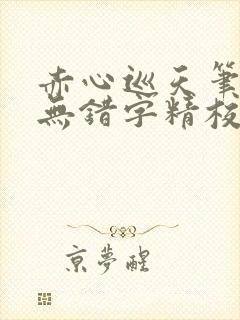 赤心巡天筆
無錯字精校
京夢醒